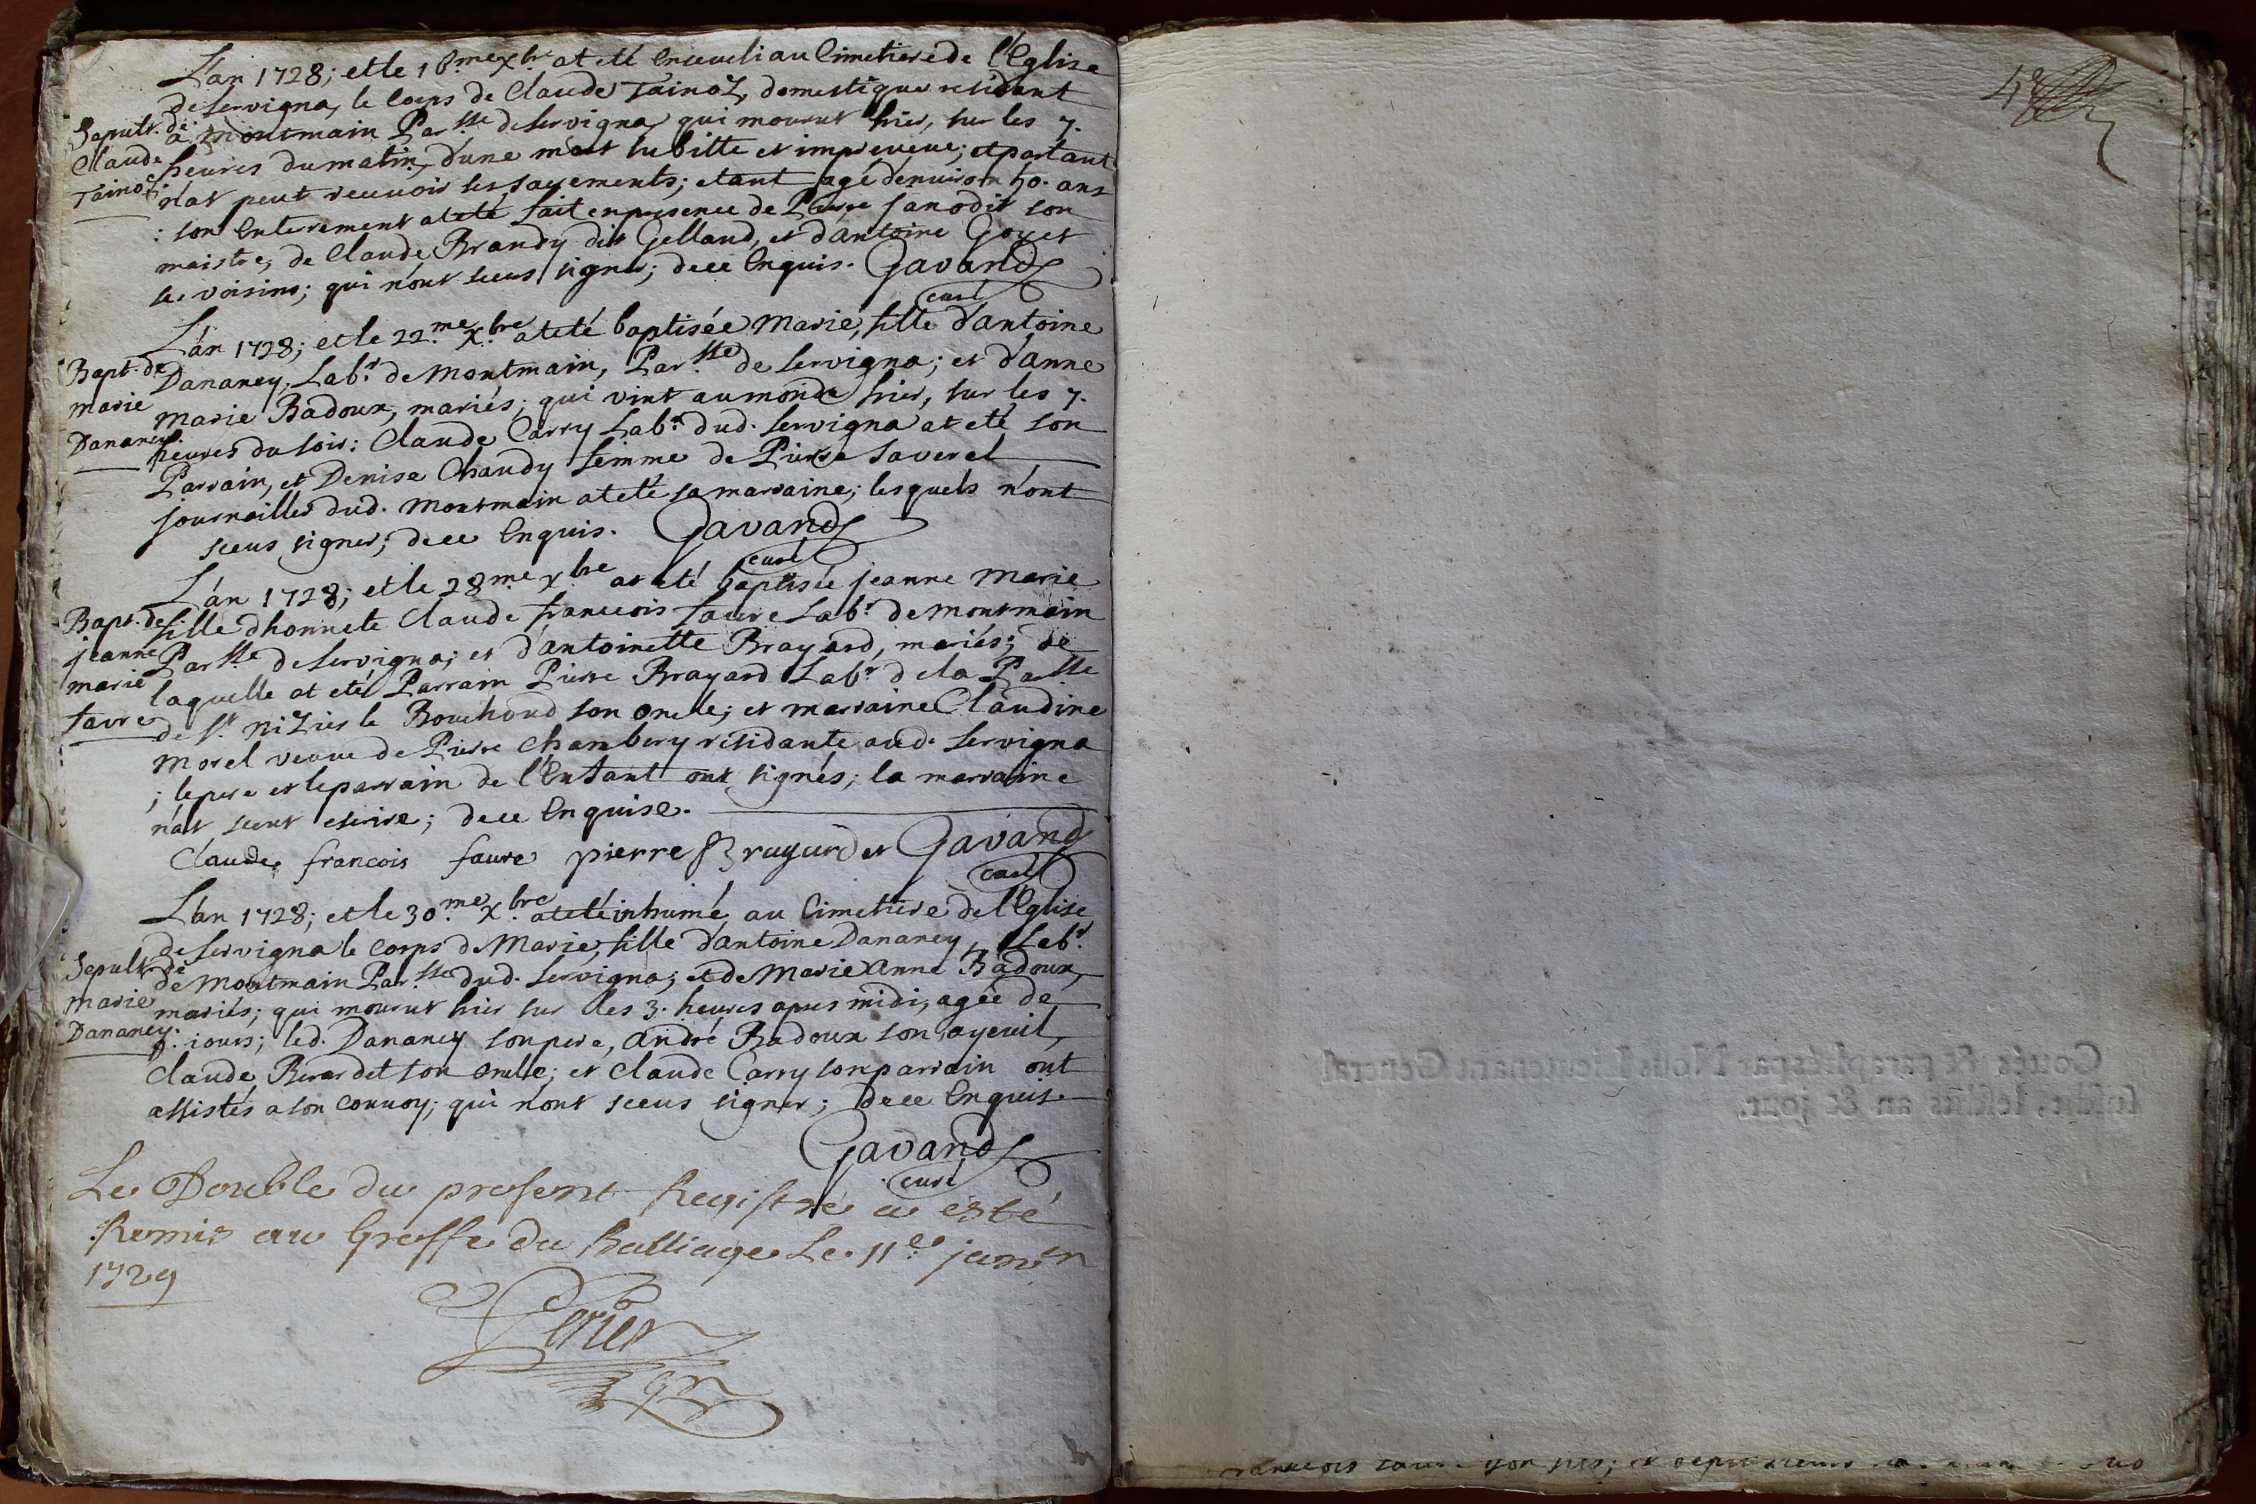 L'an 1728; et le 18.me xbr. at eté enseveli au Cimetiere de l'Eglise
de Servigna, le Corps de Claude Tainoz, domestique residant
Sepult. de
Claude
Tainoz.
a Montmain Par.sse de Servigna qui mourut hier, sur les 7.
heures du matin, d'une mort subitte et impreveue; et partant
n'at peut recevoir les sacrements; etant agé d'environ 50. ans
: son Enterement at eté fait en presence de Pierre Janodit son
maistre, de Claude Brandy dit Gelland, et d'antoine Goyet
ses voisins; qui n'ont sceus signer; de ce Enquis. Gavand
curé
L'an 1728; et le 22.me x.bre at eté baptisée Marie, fille d'antoine
Bapt. de
marie
Dananey.
Dananey, Lab.r de Montmain, Par.sse de Servigna; et d'anne
Marie Badoux, mariés; qui vint au monde hier, sur les 7.
heures du soir: Claude Carry Lab.r dud. Servigna at eté son
Parrain, et Denise Chaudy femme de Pierre Saverel
journailler dud. Montmain at eté sa marraine; lesquels n'ont
sceus signer; de ce Enquis. Gavand
curé
L'an 1728; et le 28.me x.bre at eté baptisée jeanne Marie
Bapt. de
jeanne
marie
favre
fille d'honnete Claude francois favre Lab.r de Montmain
Par.sse de Servigna; et d'antoinette Brayard, mariés; de
laquelle at eté Parrain Pierre Brayard Lab.r de la Pa.sse
de S.t Nizier le Bouchoud son oncle; et marraine Claudine
Morel veuve de Pierre Chambery residante aud. Servigna
; le pere et le parrain de l'Enfant ont signés; la marraine
n'at sceut escrire; de ce Enquise.
Claude francois favre pierre Brayard et Gavand
curé
L'an 1728; et le 30.me x.bre at eté inhumé au Cimetiere de l'Eglise
de Servigna le corps de Marie, fille d'antoine Dananey, Lab.r
Sepult. de
marie
Dananey.
de Montmain Par.sse dud. Servigna; et de Marie Anne Badoux,
mariés; qui mourut hier sur les 3. heures apres midi, agée de
8. iours; led. Dananey son pere, André Badoux son ayeuil,
Claude Berardet son oncle; et Claude Carry son parrain ont
assistés a son convoy; qui n'ont sceus signer; de ce Enquis.
Gavand
curé
Le Double du present Registre a esté
Remis au Greffe du Balliage Le 11.e janv.er
1729
Perier
48
Cottés & paraphés par Nous Lieutenant General
susdit, lesdits an & jour.